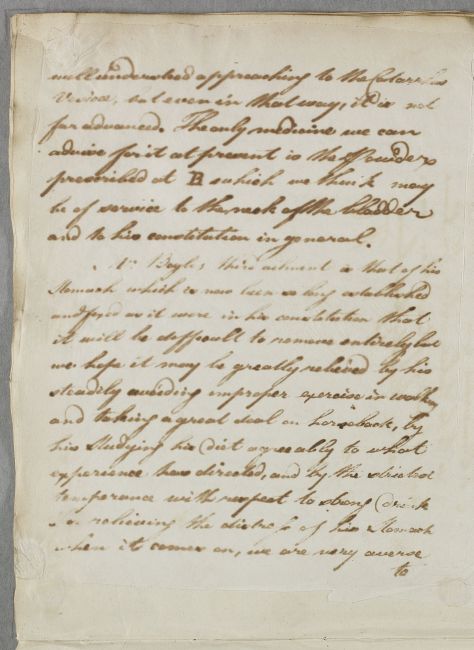 well understood approaching to the Catarrhus
Vesicae, but even in that way, it is not
far advanced. The only medicine we can
advise for it at present is the Powders
prescribed at B which we think may
be of service to the neck of the bladder
and to his constitution in general.
Mr Boyle's third ailment is that of his
Stomach which is now been so long established
and fixed as it were in his constitution that
it will be difficult to remove entirely but
we hope it may be greatly relieved by his
steadily avoiding improper exercise in walking
and taking a great deal on horseback, by
his studying his Diet agreeably to what
experience has directed, and by the strictest
temperance with respect to strong Drink
in relieving the distress of his Stomach
when it comes on, we are very averse
to